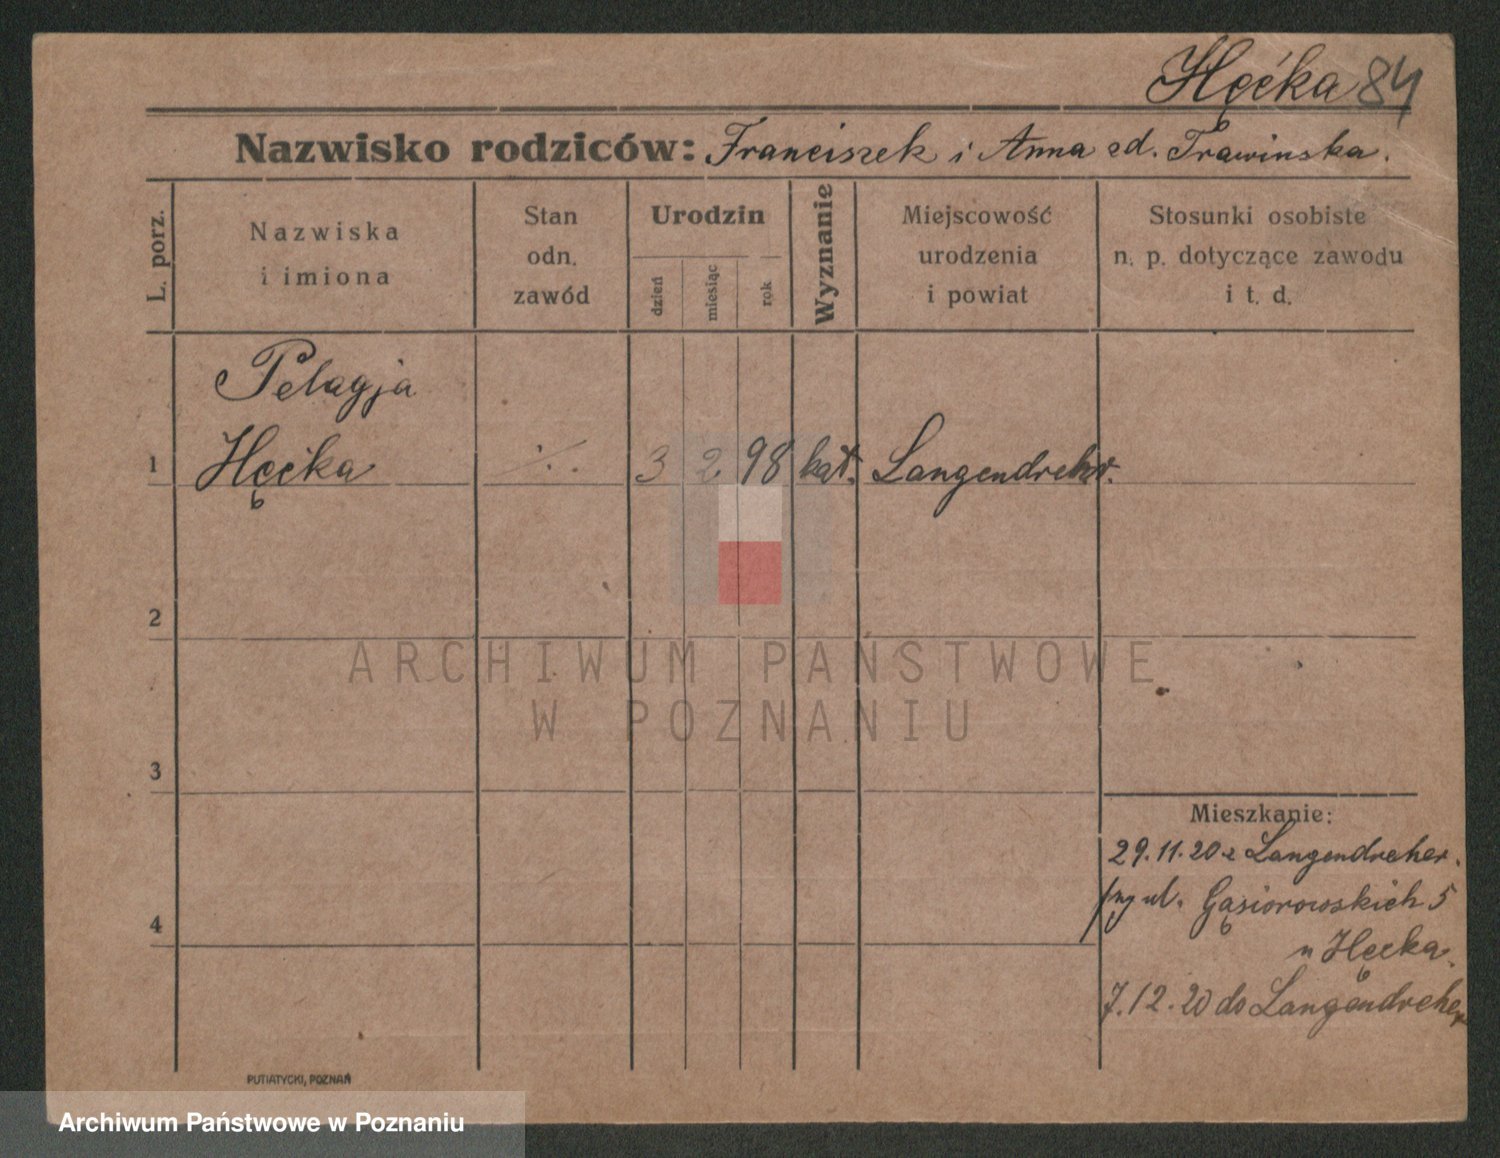 Hęćka 84
Nazwisko rodziców: Franciszek i Anna zd. Trawinska.
L. porz.
Nazwiska
i imiona
Stan
odn.
zawód
Urodzin
dzień
miesiąc
rok
Wyznanie
Miejscowość
urodzenia
i powiat
Stosunki osobiste
n. p. dotyczące zawodu
i t. d.
Pelagja
1 Hęćka ·/. 3 2 98 kat. Langendreher.
2
ARCHIWUM PAŃSTWOWE
W POZNANIU
3
Mieszkanie:
29.11.20 z Langendreher.
ul. Gąsiorowskich 5
u Hęćka.
4
7.12.20 do Langendreher
PUTIATYCKI, POZNAŃ
Archiwum Państwowe w Poznaniu